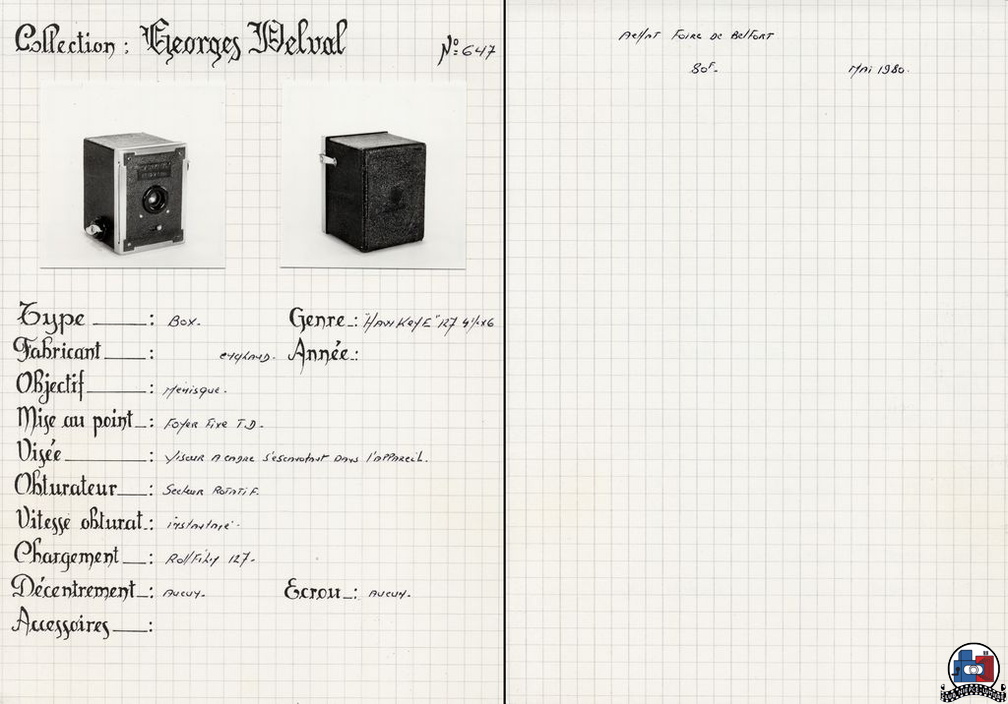 Collection : Georges Delval
N° 647
Type : Box.
Genre : "HawKeyE" 127 4½x6
Fabricant : england.
Année :
Objectif : Ménisque.
Mise au point : Foyer Fixe T.D.
Visée : Viseur A cadre s'escamotant DANS l'APPAREIL.
Obturateur : Secteur Rotatif.
Vitesse obturat. : instantané.
Chargement : RollFilm 127.
Décentrement : Aucun.
Ecrou : Aucun.
Accessoires :
Achat Foire de Belfort
80F.
Mai 1980.